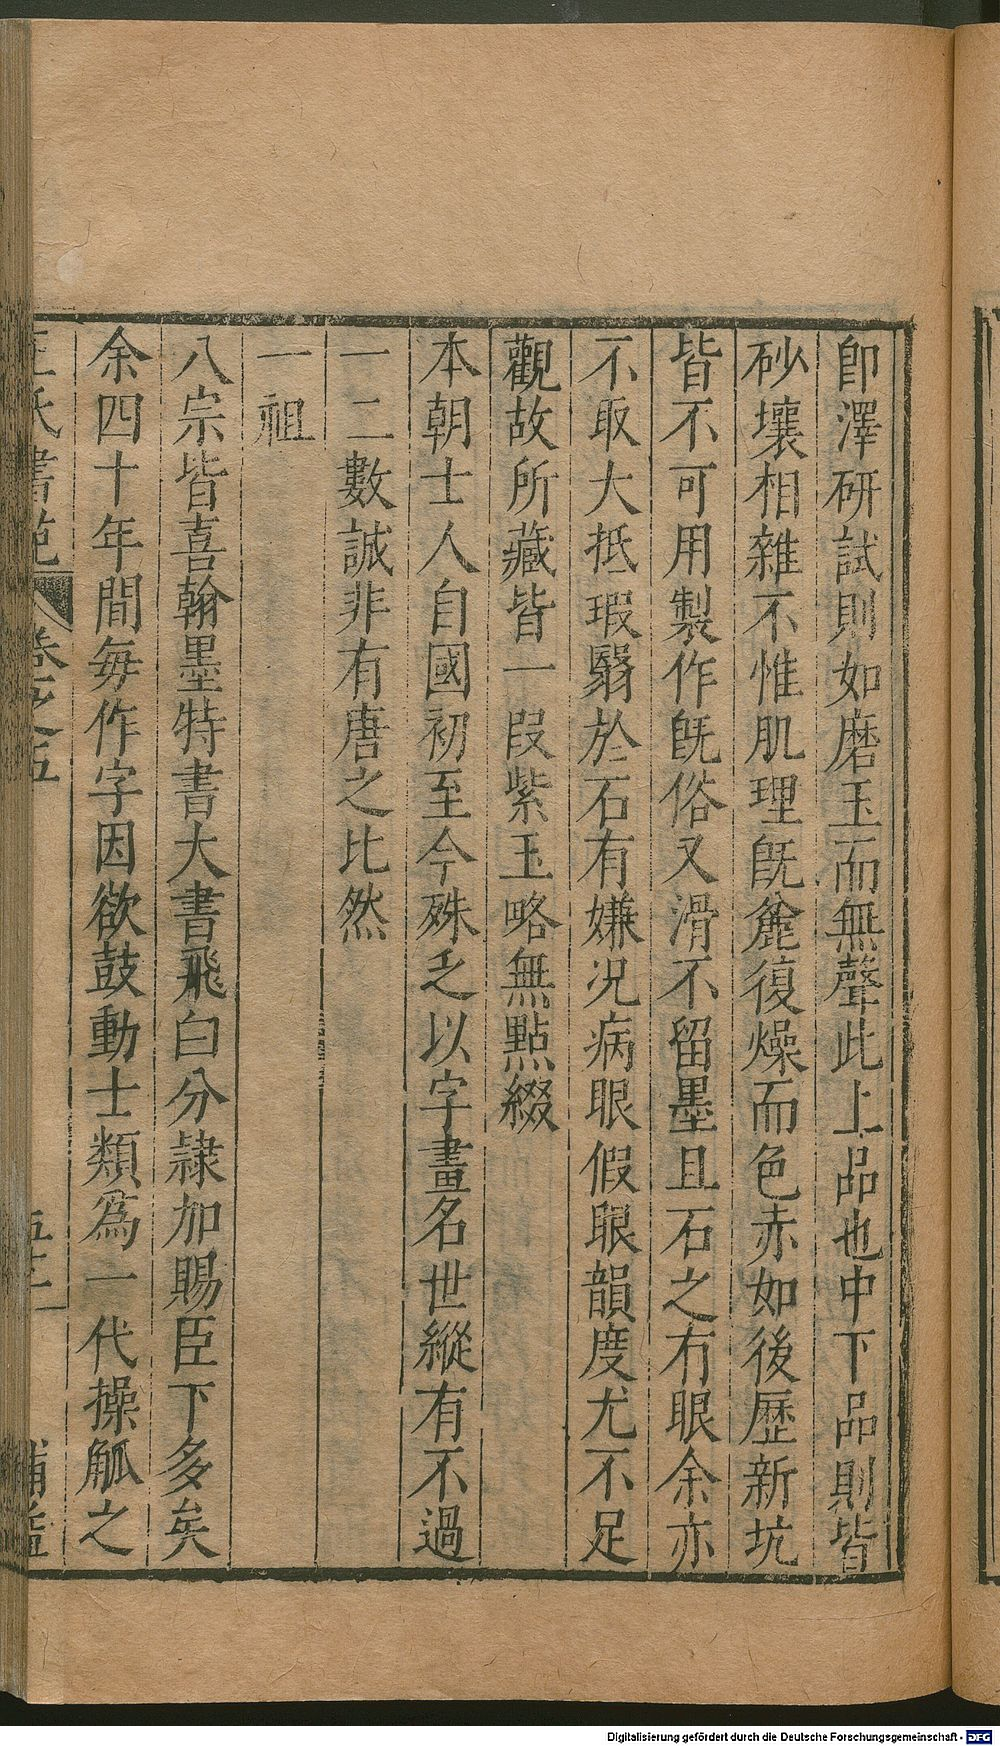 即澤研試則如磨玉而無聲此上品也中下品則皆
砂壤相雜不惟肌理旣麄復燥而色赤如後歷新坑
皆不可用製作旣俗又滑不留墨且石之有眼余亦
不取大抵瑕翳於石有嫌况病眼假眼韻度尤不足
觀故所藏皆一段紫玉略無點綴
本朝士人自國初至今殊乏以字畫名世縱有不過
一二數誠非有唐之比然
一祖
八宗皆喜翰墨特書大書飛白分隷加賜臣下多矣
余四十年間每作字因欲鼓動士類爲一代操觚之
王氏書苑 卷之五
補益
Digitalisierung gefördert durch die Deutsche Forschungsgemeinschaft - DFG